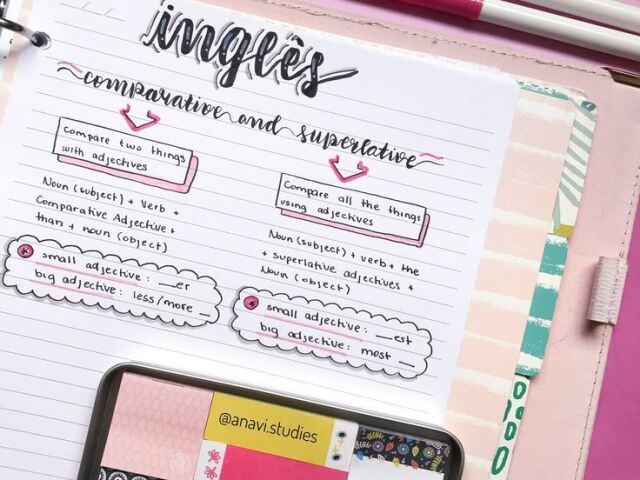 inglês
comparative and superlative
Compare two things
with adjectives
Noun (subject) + Verb +
Comparative Adjective +
than + noun (object)
small adjective: __er
big adjective: less/more __
Compare all the things
using adjectives
Noun (subject) + verb + the
+ superlative adjectives +
Noun (object)
small adjective: __est
big adjective: most __
@anavi.studies